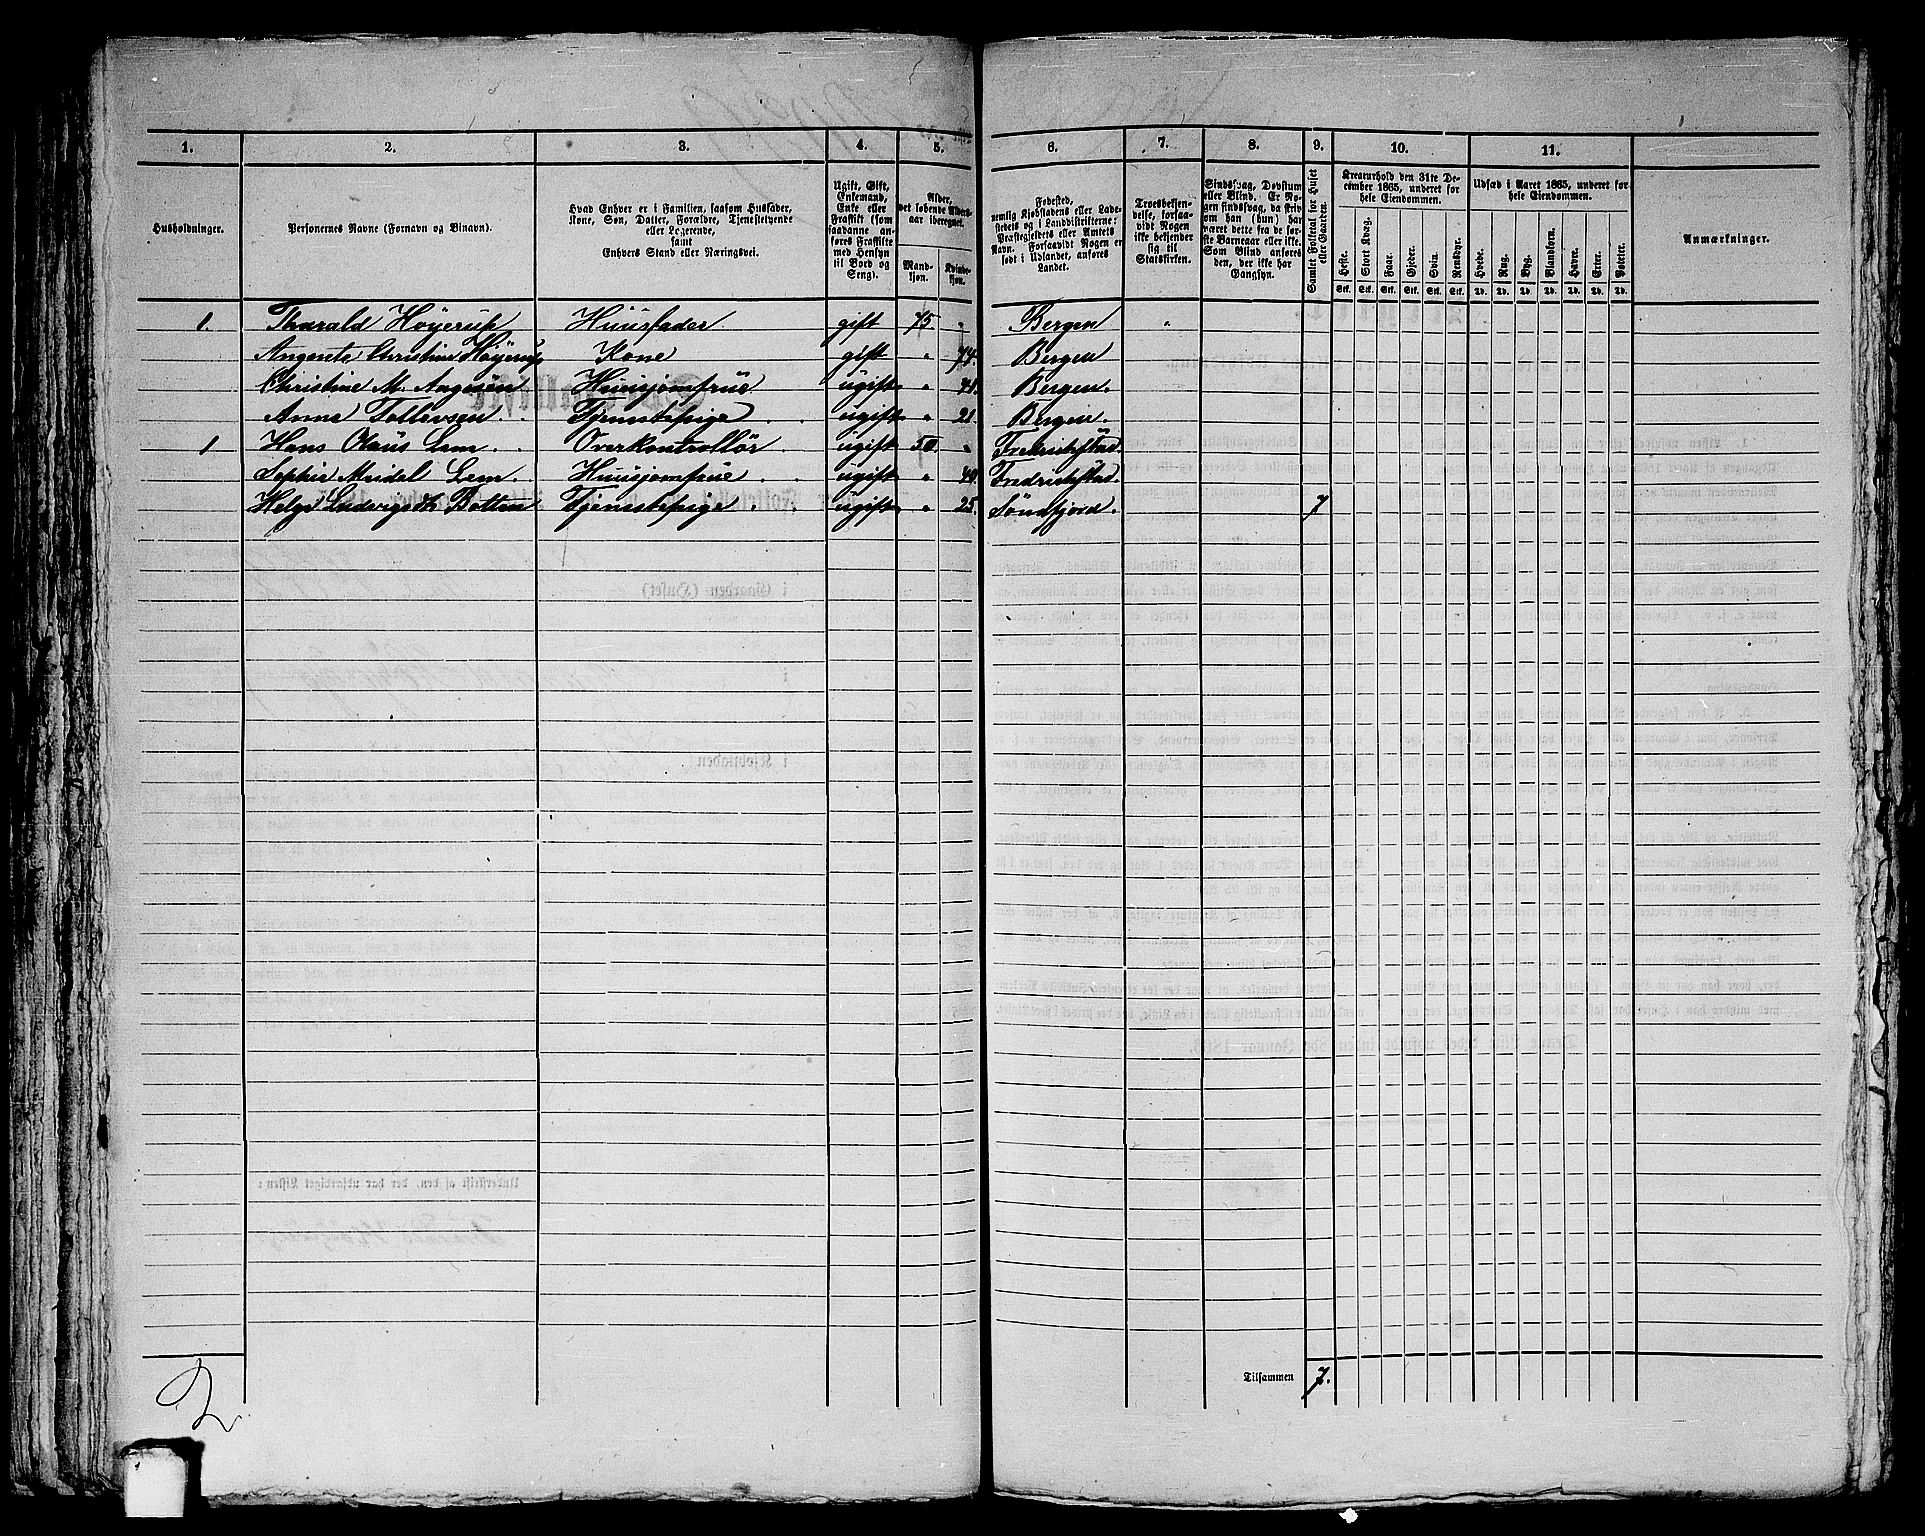 1. 2. 3. 4. 5. 6. 7. 8. 9. 10. 11.
Husholdninger.
Personernes Navne (Fornavn og Binavn).
Hvad Enhver er i Familien, saasom Husfader,
Kone, Søn, Datter, Forældre, Tjenestetyende
eller Logerende,
samt
Enhvers Stand eller Næringsvei.
Ugift, Gift,
Enkemand,
Enke eller
Fraskilt (som
saadanne an-
føres Fraskilte
med Hensyn
til Bord og
Seng).
Alder,
det løbende Alders-
aar iberegnet.
Mand-
kjøn.
Kvinde-
kjøn.
Fødested,
nemlig Kjøbstadens eller Lade-
stedets og i Landdistrikterne:
Præstegjeldets eller Amtets
Navn. Forsaavidt Nogen er
født i Udlandet, anføres
Landet.
Troesbekjen-
delse, forsaa-
vidt Nogen
ikke bekjender
sig til
Statskirken.
Sindssvag, Døvstum
eller Blind. Er No-
gen sindssvag, da skriv
om han (hun) har
været dette fra de før-
ste Barneaar eller ikke.
Som Blind anføres
den, der ikke har
Gangsyn.
Samlet Folketal for Huset
eller Gaarden.
Kreaturhold den 31te De-
cember 1865, underet for
hele Eiendommen.
Heste. Stort Kvæg. Faar. Gjeder. Svin. Rensdyr.
Stk. Stk. Stk. Stk. Stk. Stk.
Udsæd i Aaret 1865, underet for
hele Eiendommen.
Hvede. Rug. Byg. Blandkorn. Havre. Erter. Poteter.
Td. Td. Td. Td. Td. Td. Td.
Anmærkninger.
1. Tharald Höyerup Huusfader gift 75 " Bergen "
Angenete Christine Höyerup Kone gift " 77. Bergen
Christine M. Angesen Huusjomfrue ugift " Bergen.
Anne Tollevsen Tjenestepige ugift " 21. Bergen.
1 Hans Olaüs Lem Overkontrollör ugift 50 " Fredrichstad.
Sophie Meidel Lem. Huusjomfrue ugift " Fredrichstad.
Botten Tjenestepige ugift " 25. Söndfjord. 7
Tilsammen 7.
2